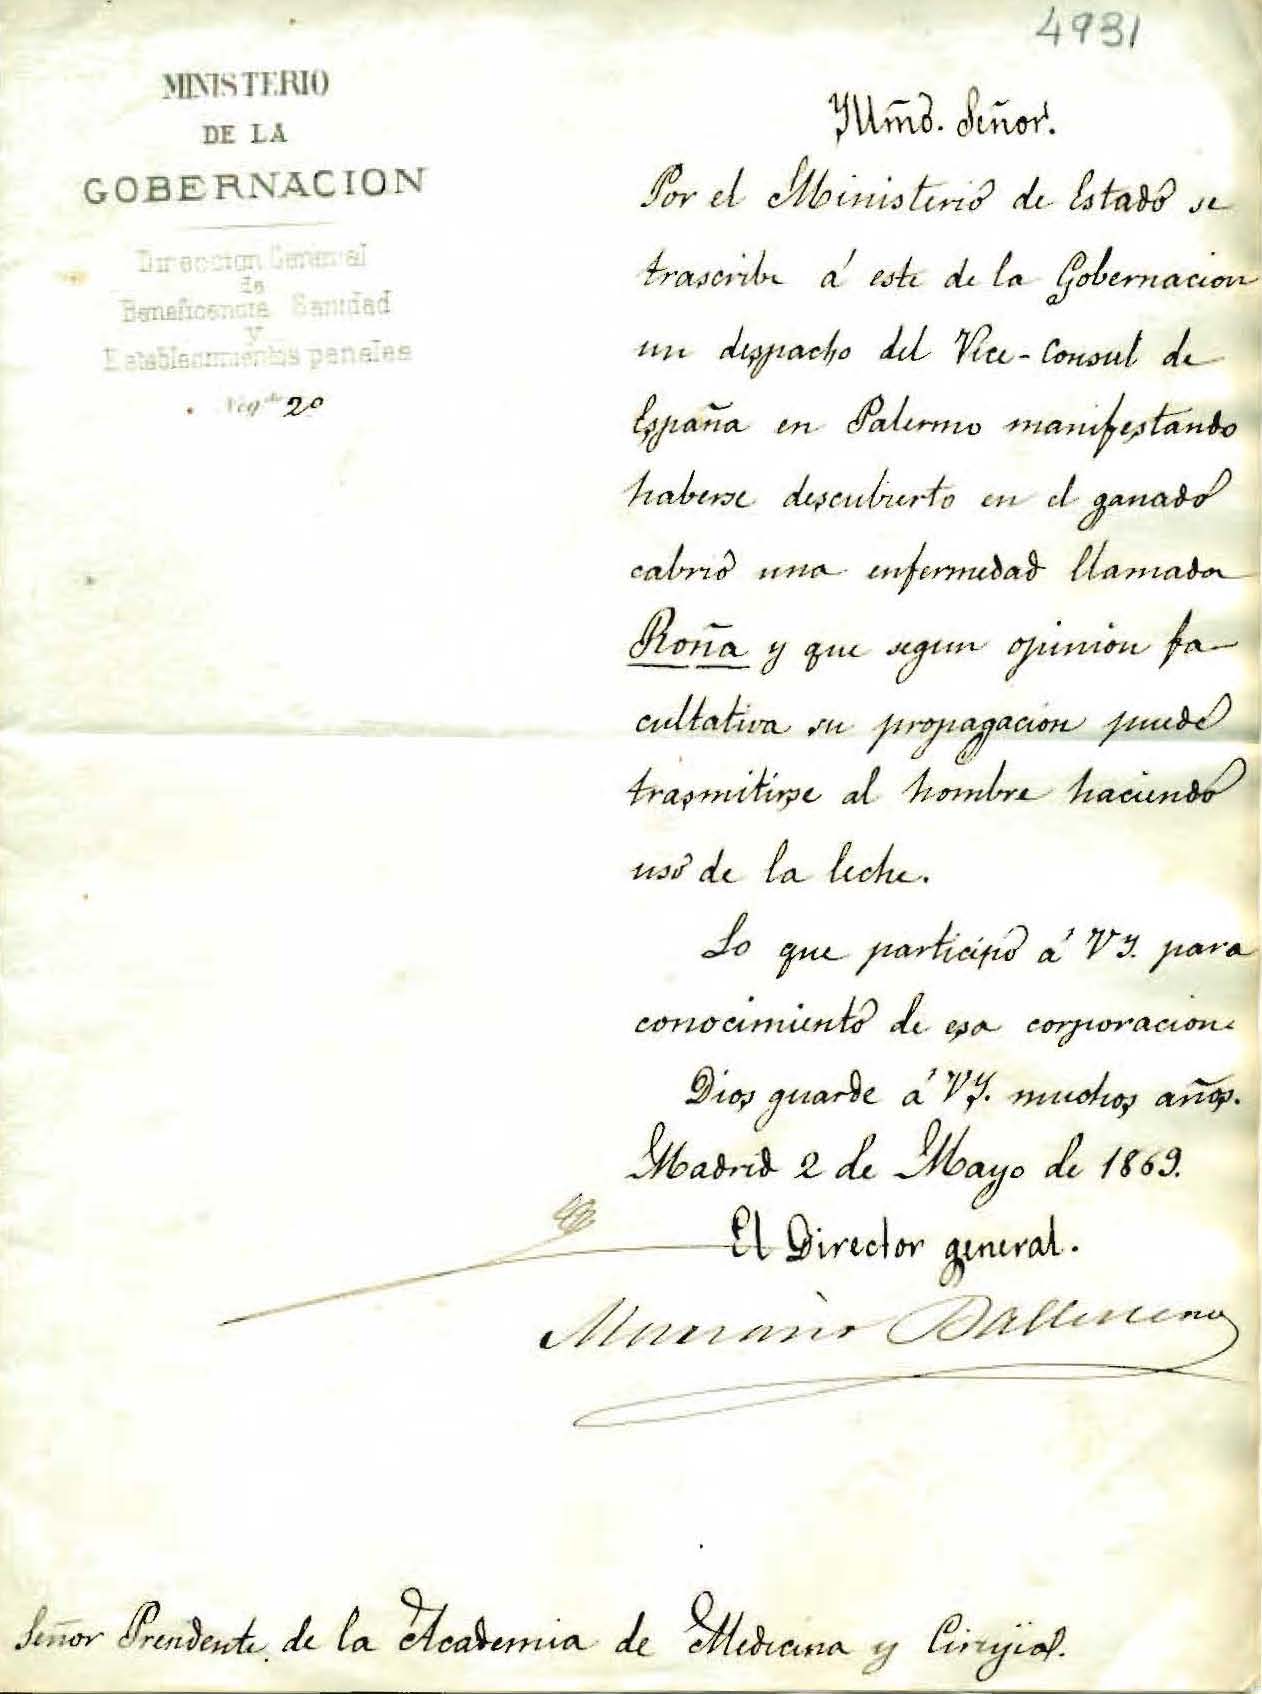 4931
MINISTERIO
DE LA
GOBERNACION
Direccion General
de
Beneficencia Sanidad
y
Establecimientos penales
Negdo 2o
Yllmo. Señor.
Por el Ministerio de Estado se
trascribe á este de la Gobernacion
un despacho del Vice-Consul de
España en Palermo manifestando
haberse descubierto en el ganado
cabrio una enfermedad llamada
Roña y que segun opinion fa-
cultativa su propagacion puede
trasmitirse al hombre haciendo
uso de la leche.
Lo que participo á VY. para
conocimiento de esa corporacion.
Dios guarde á VY. muchos años.
Madrid 2 de Mayo de 1869.
El Director general.
Mariano Ballestero
Señor Presidente de la Academia de Medicina y Cirujia.